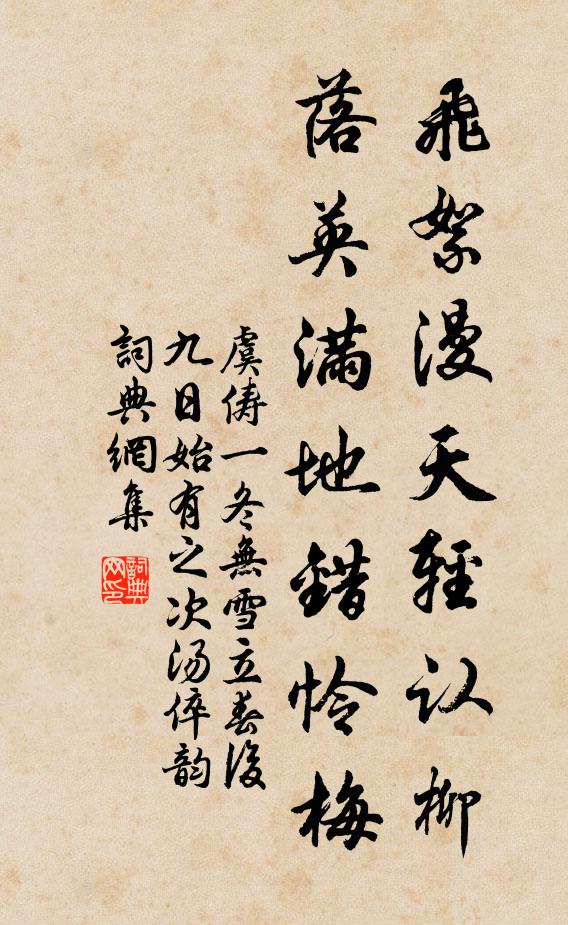 飛絮漫天輕认柳
落英滿地錯怜梅
虞儔一冬無雪立春後
九日始有之次汤倅韵
詞典網集
詞典网印